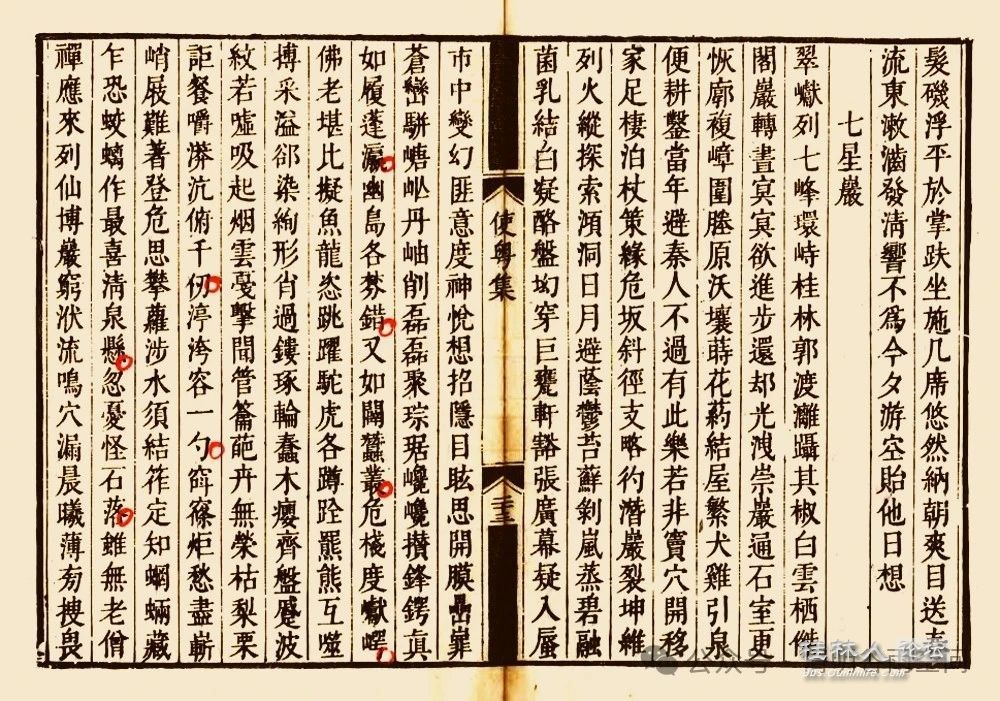 髮磯浮平於掌趺坐施几席悠然納朝爽目送去
流東漱滴發淸響不爲今夕游空貽他日想
七星巖
翠巘列七峰環峙桂林郭渡灕躡其椒白雲栖傑
閣巖轉晝冥冥欲進步還却光洩崇巖逼石室更
恢廓複嶂圍塍原沃壤蒔花葯結屋繁犬雞引泉
便耕鑿當年避秦人不過有此樂若非竇穴開移
家足棲泊杖策緣危坂斜徑支略彴潛巖裂坤維
列火縱探索澒洞日月避蔭鬱苔蘚剝嵐蒸碧融
菌乳結白凝酪盤坳穿巨甕軒豁張廣幕疑入蜃
使粤集
市中變幻匪意度神悅想招隱目眩思開膜
蒼巒駢嵣丹岫削磊磊聚琮琚巉巉攢鋒鍔眞
如履蓬瀛幽島各棼錯又如闢蠶叢危棧度巘
佛老堪比擬魚龍恣跳躍駝虎各蹲跧羆熊互噬
搏采溢郤染絢形肖過鏤琢輪蠡木癭齊盤蹙波
紋若噓吸起烟雲戛擊聞管籥葩卉無榮枯梨栗
詎餐嚼漭沆俯千仞渟洿容一勺窅窱炬愁盡嶄
峭屐難著登危思攀蘿涉水須結筰定知蜩蜽藏
乍恐蛟螭作最喜淸泉懸忽憂怪石落錐無老僧
禪應來列仙博巖窮洑流鳴穴漏晨曦薄旁搜畏
公众号
桂林人论坛